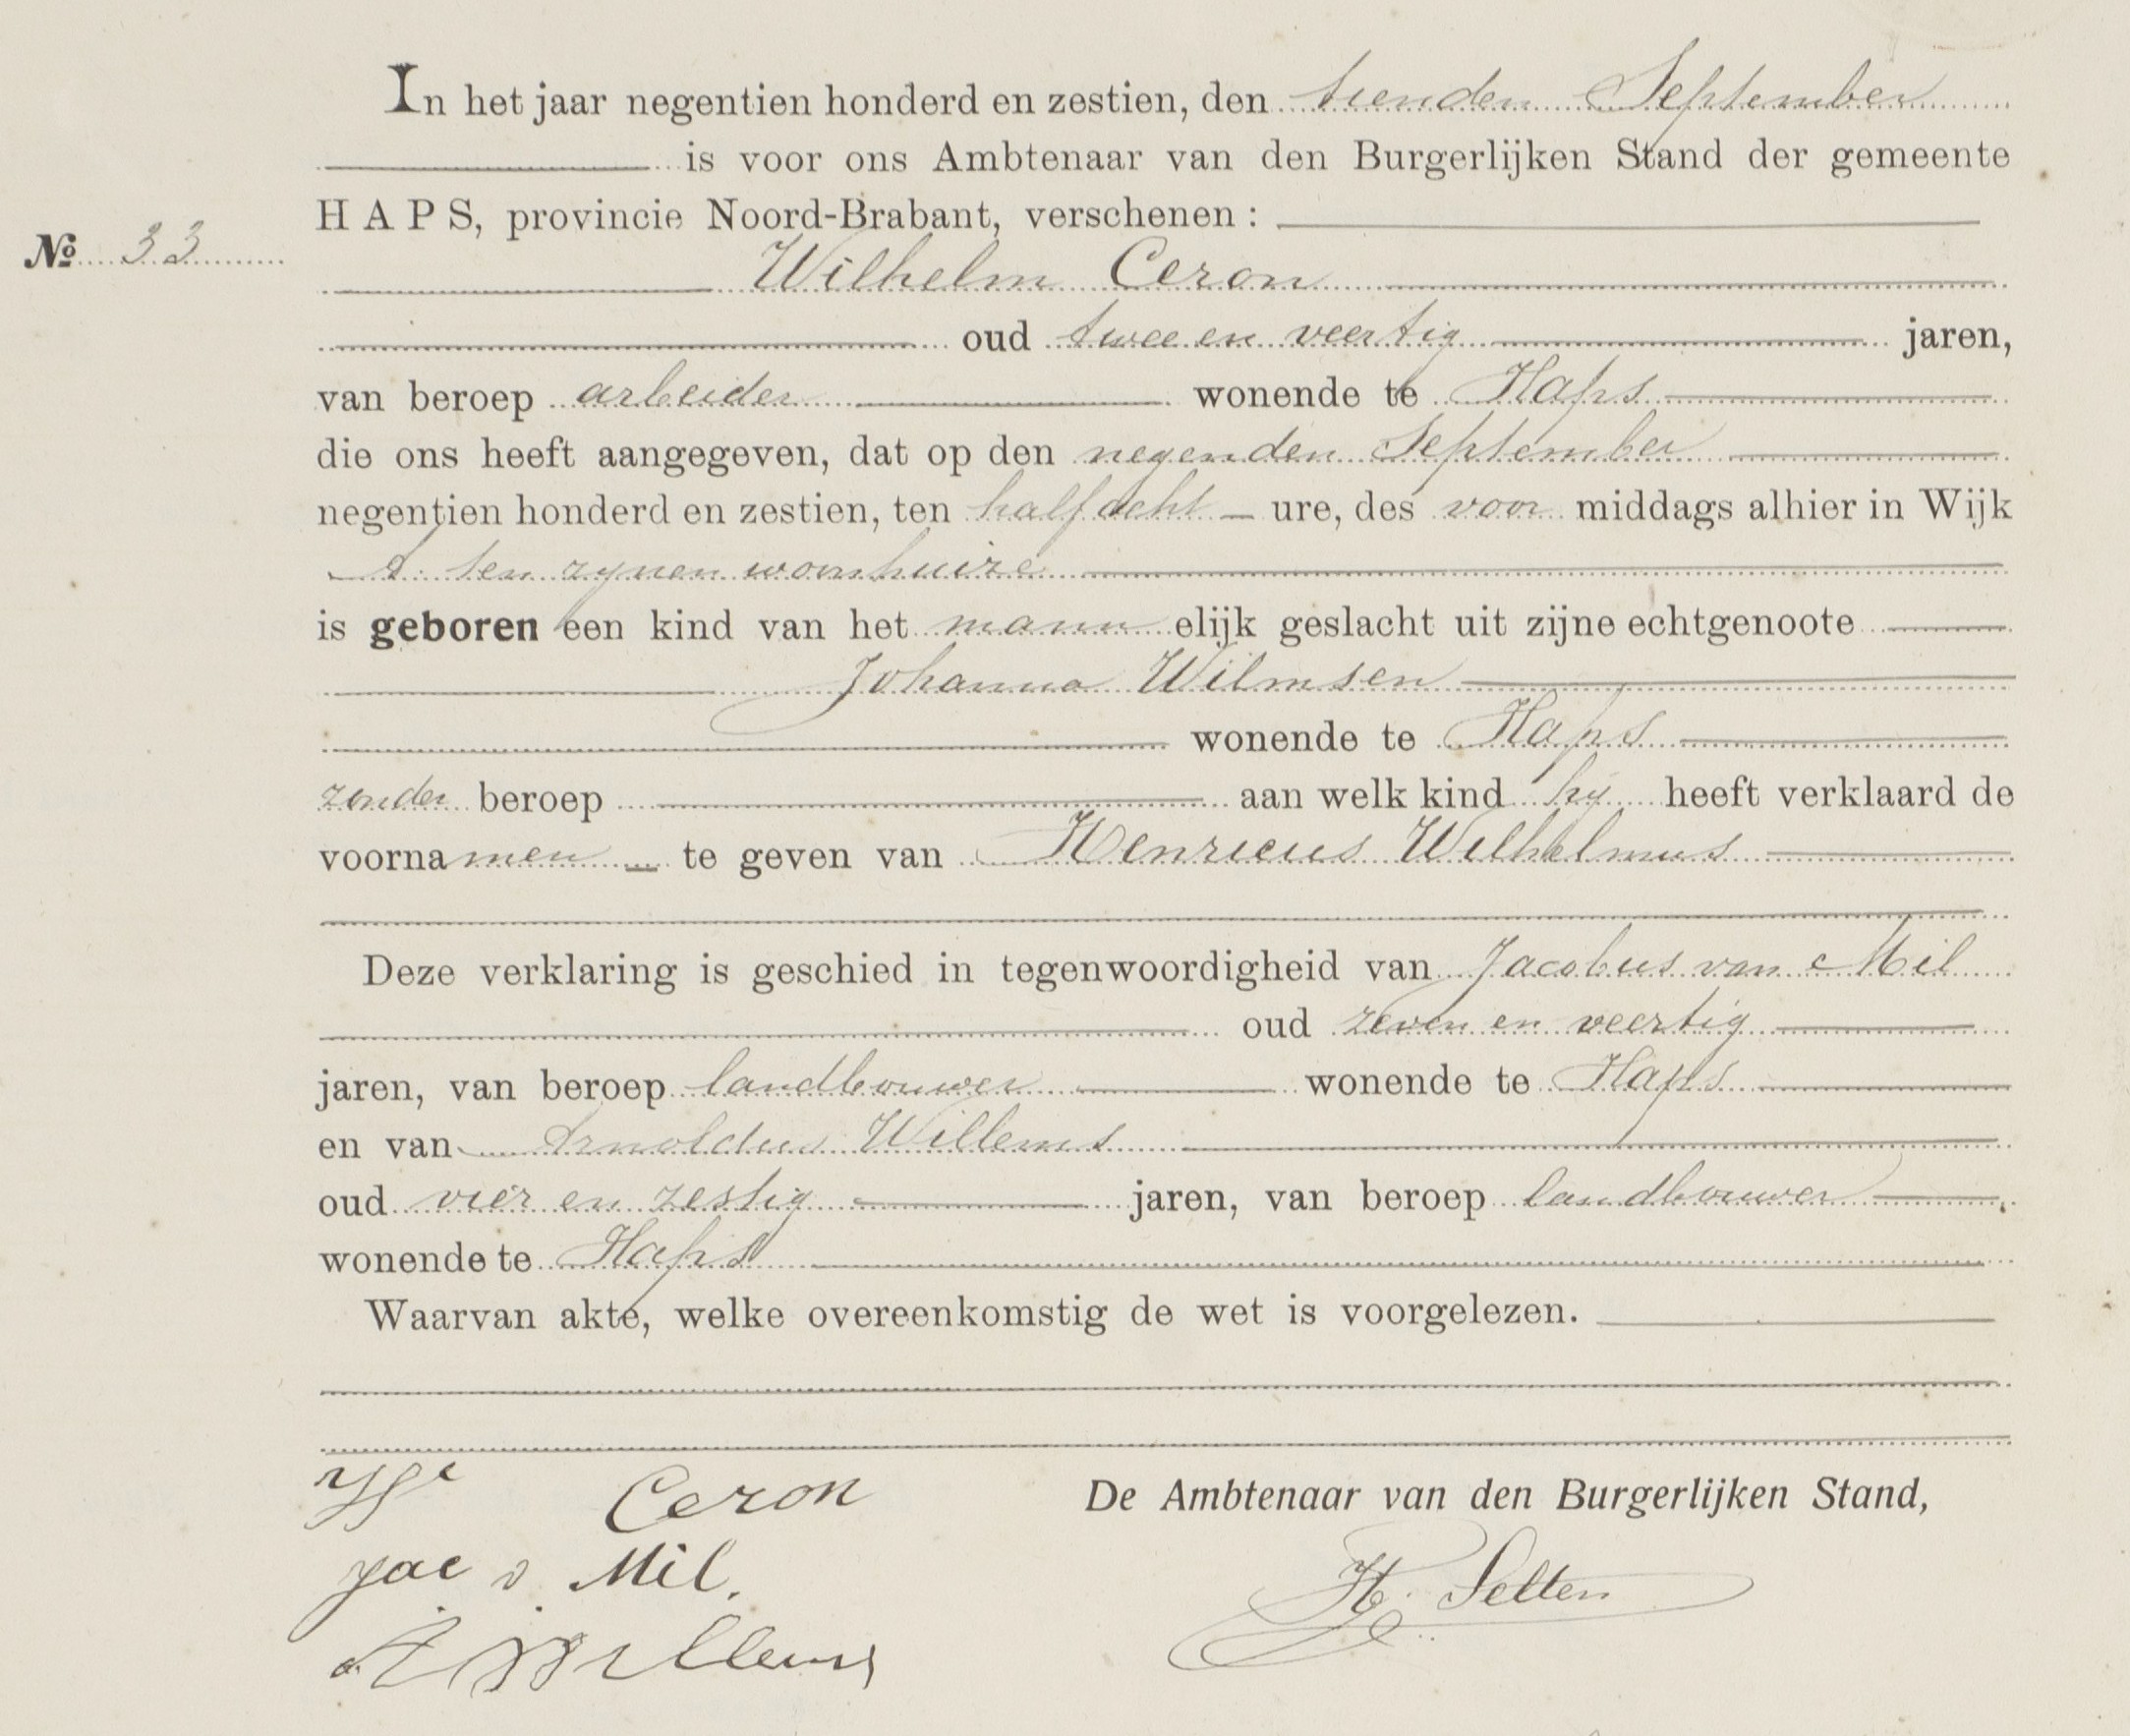 In het jaar negentien honderd en zestien, den tienden September
is voor ons Ambtenaar van den Burgerlijken Stand der gemeente
HAPS, provincie Noord-Brabant, verschenen:
No 33
Wilhelm Ceron
oud twee en veertig jaren,
van beroep arbeider wonende te Haps
die ons heeft aangegeven, dat op den negenden September
negentien honderd en zestien, ten half acht ure, des voor middags alhier in Wijk
A. ten zynen woonhuize
is geboren een kind van het mann elijk geslacht uit zijne echtgenoote
Johanna Wilmsen
wonende te Haps
zonder beroep aan welk kind hy heeft verklaard de
voornamen te geven van Henricus Wilhelmus
Deze verklaring is geschied in tegenwoordigheid van Jacobus van Mil
oud zeven en veertig
jaren, van beroep landbouwer wonende te Haps
en van Arnoldus Willems
oud vier en zestig jaren, van beroep landbouwer
wonende te Haps
Waarvan akte, welke overeenkomstig de wet is voorgelezen.
Ceron
De Ambtenaar van den Burgerlijken Stand,
Jac v. Mil.
H. Selten
A Willems